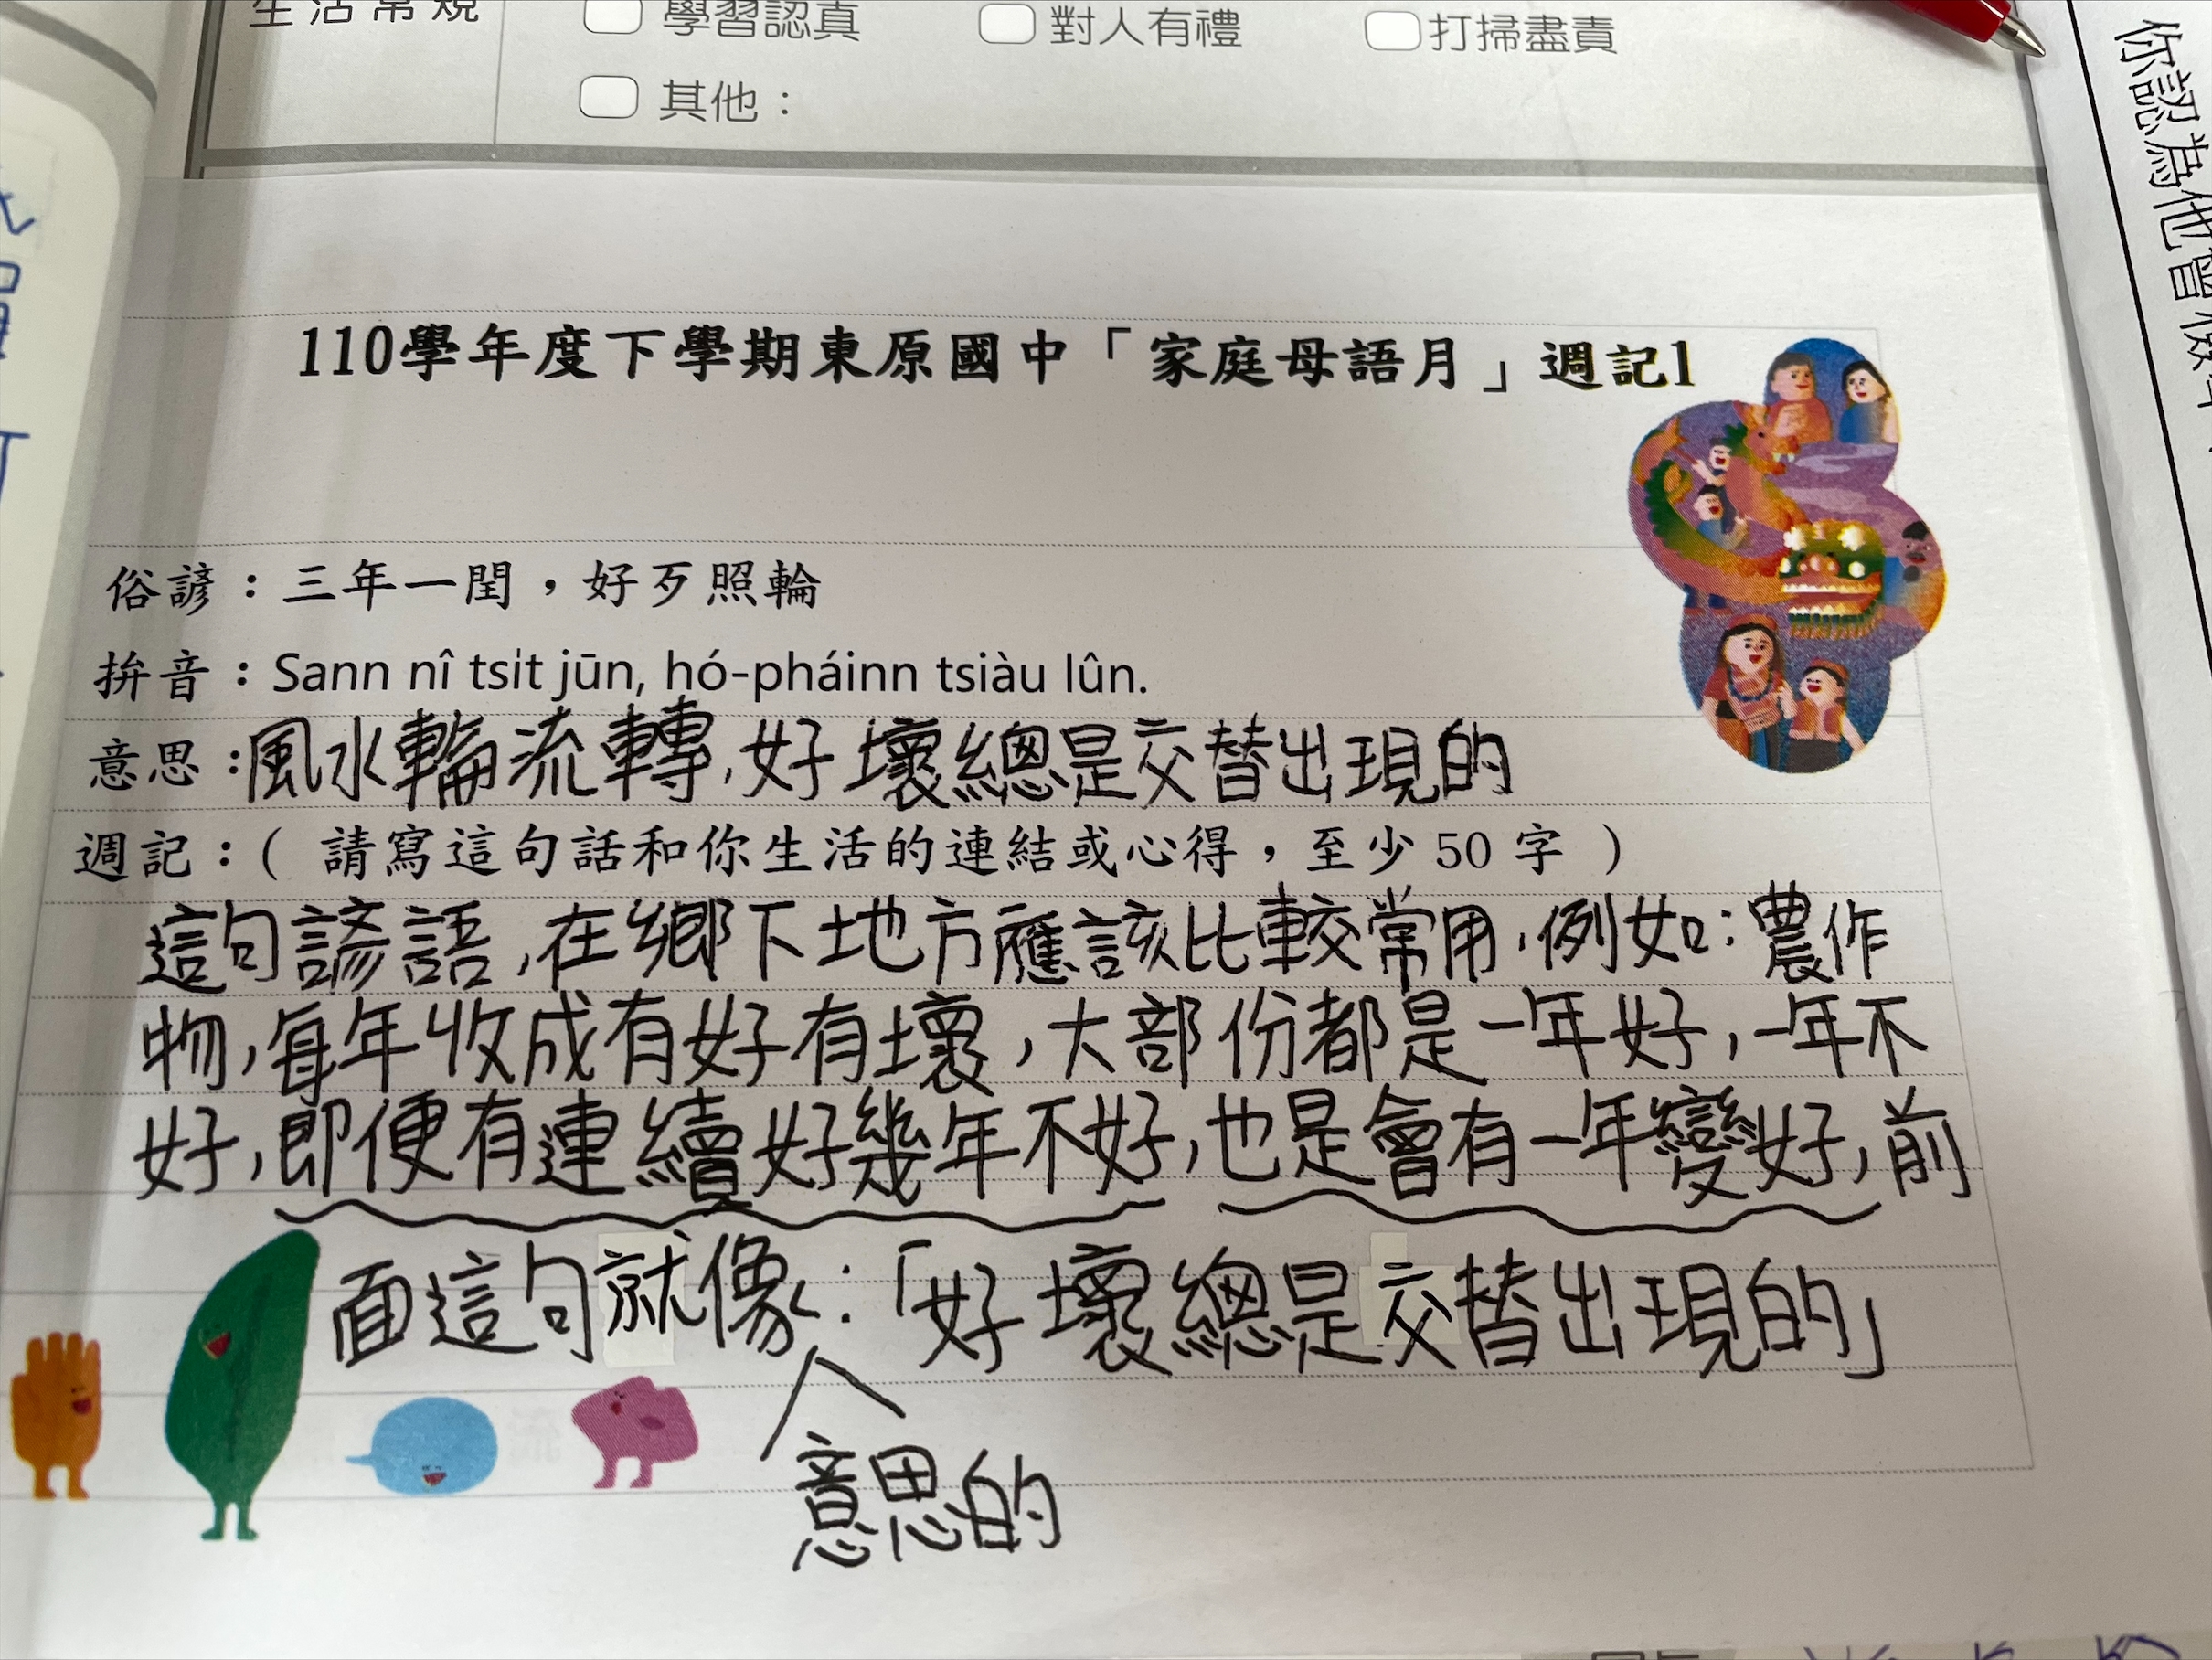 生活常規
學習認真
對人有禮
打掃盡責
其他：
110學年度下學期東原國中「家庭母語月」週記1
俗諺：三年一閏，好歹照輪
拚音：Sann nî tsi̍t jūn, hó-pháinn tsiàu lûn.
意思：風水輪流轉，好壞總是交替出現的
週記：( 請寫這句話和你生活的連結或心得，至少 50 字 )
這句諺語，在鄉下地方應該比較常用，例如：農作
物，每年收成有好有壞，大部份都是一年好，一年不
好，即便有連續好幾年不好，也是會有一年變好，前
面這句就像：「好壞總是交替出現的」
意思的
你認為他會